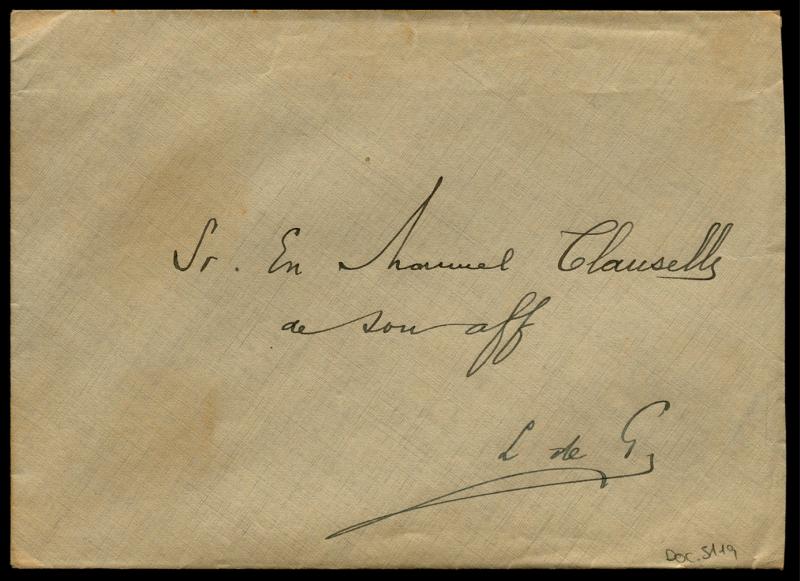 Sr. En Manuel Clausells
de son aff
L de G
DOC. S119